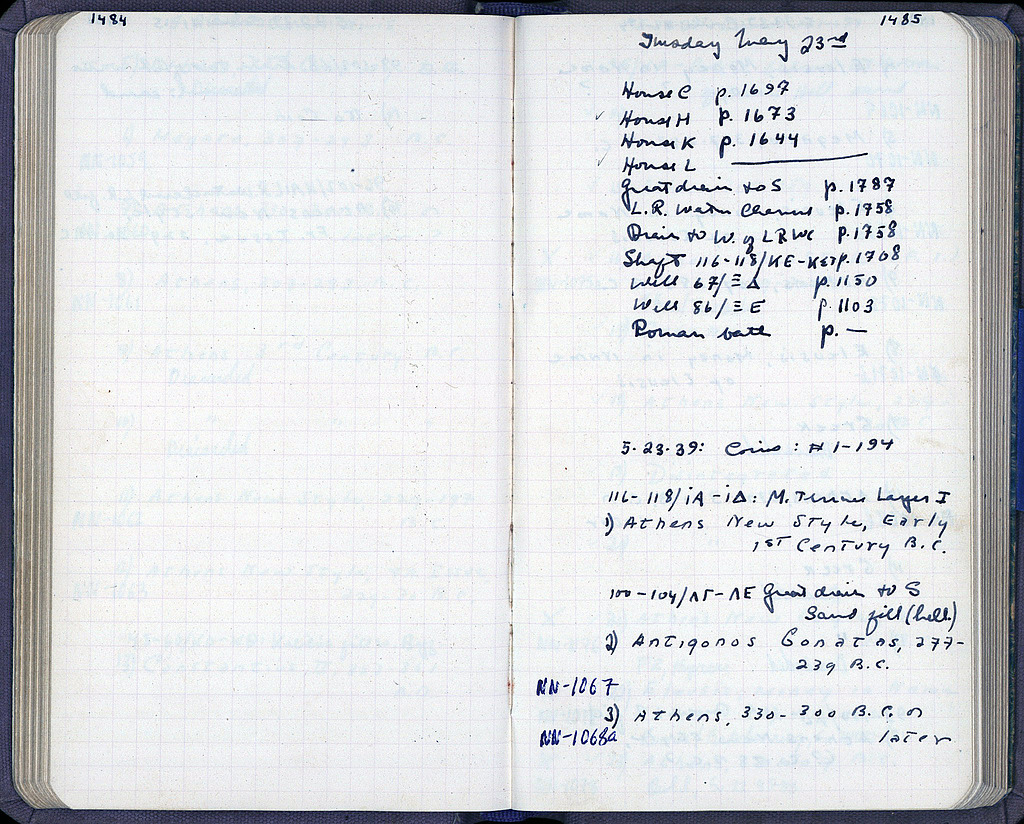 1484
1485
Tuesday May 23rd
House C p. 1697
✓ House H p. 1673
House K p. 1644
✓ House L
Great drain to S p. 1787
L.R. Water Channel p. 1758
Drain to W. of LRWC p. 1758
Shaft 116-118/KE-KST p. 1708
Well 67/ΞΔ p. 1150
Well 86/ΞE p. 1103
Roman bath p. —
5-23-39: Coins: #1-194
116-118/ιA-ιΔ: M. Terrace Layer I
1) Athens New Style, Early
1st Century B.C.
100-104/ΛΓ-ΛE Great drain to S
Sand fill (hell.)
2) Antigonos Gonatas, 277-
239 B.C.
NN-1067
3) Athens, 330-300 B.C. or
NN-1068a later